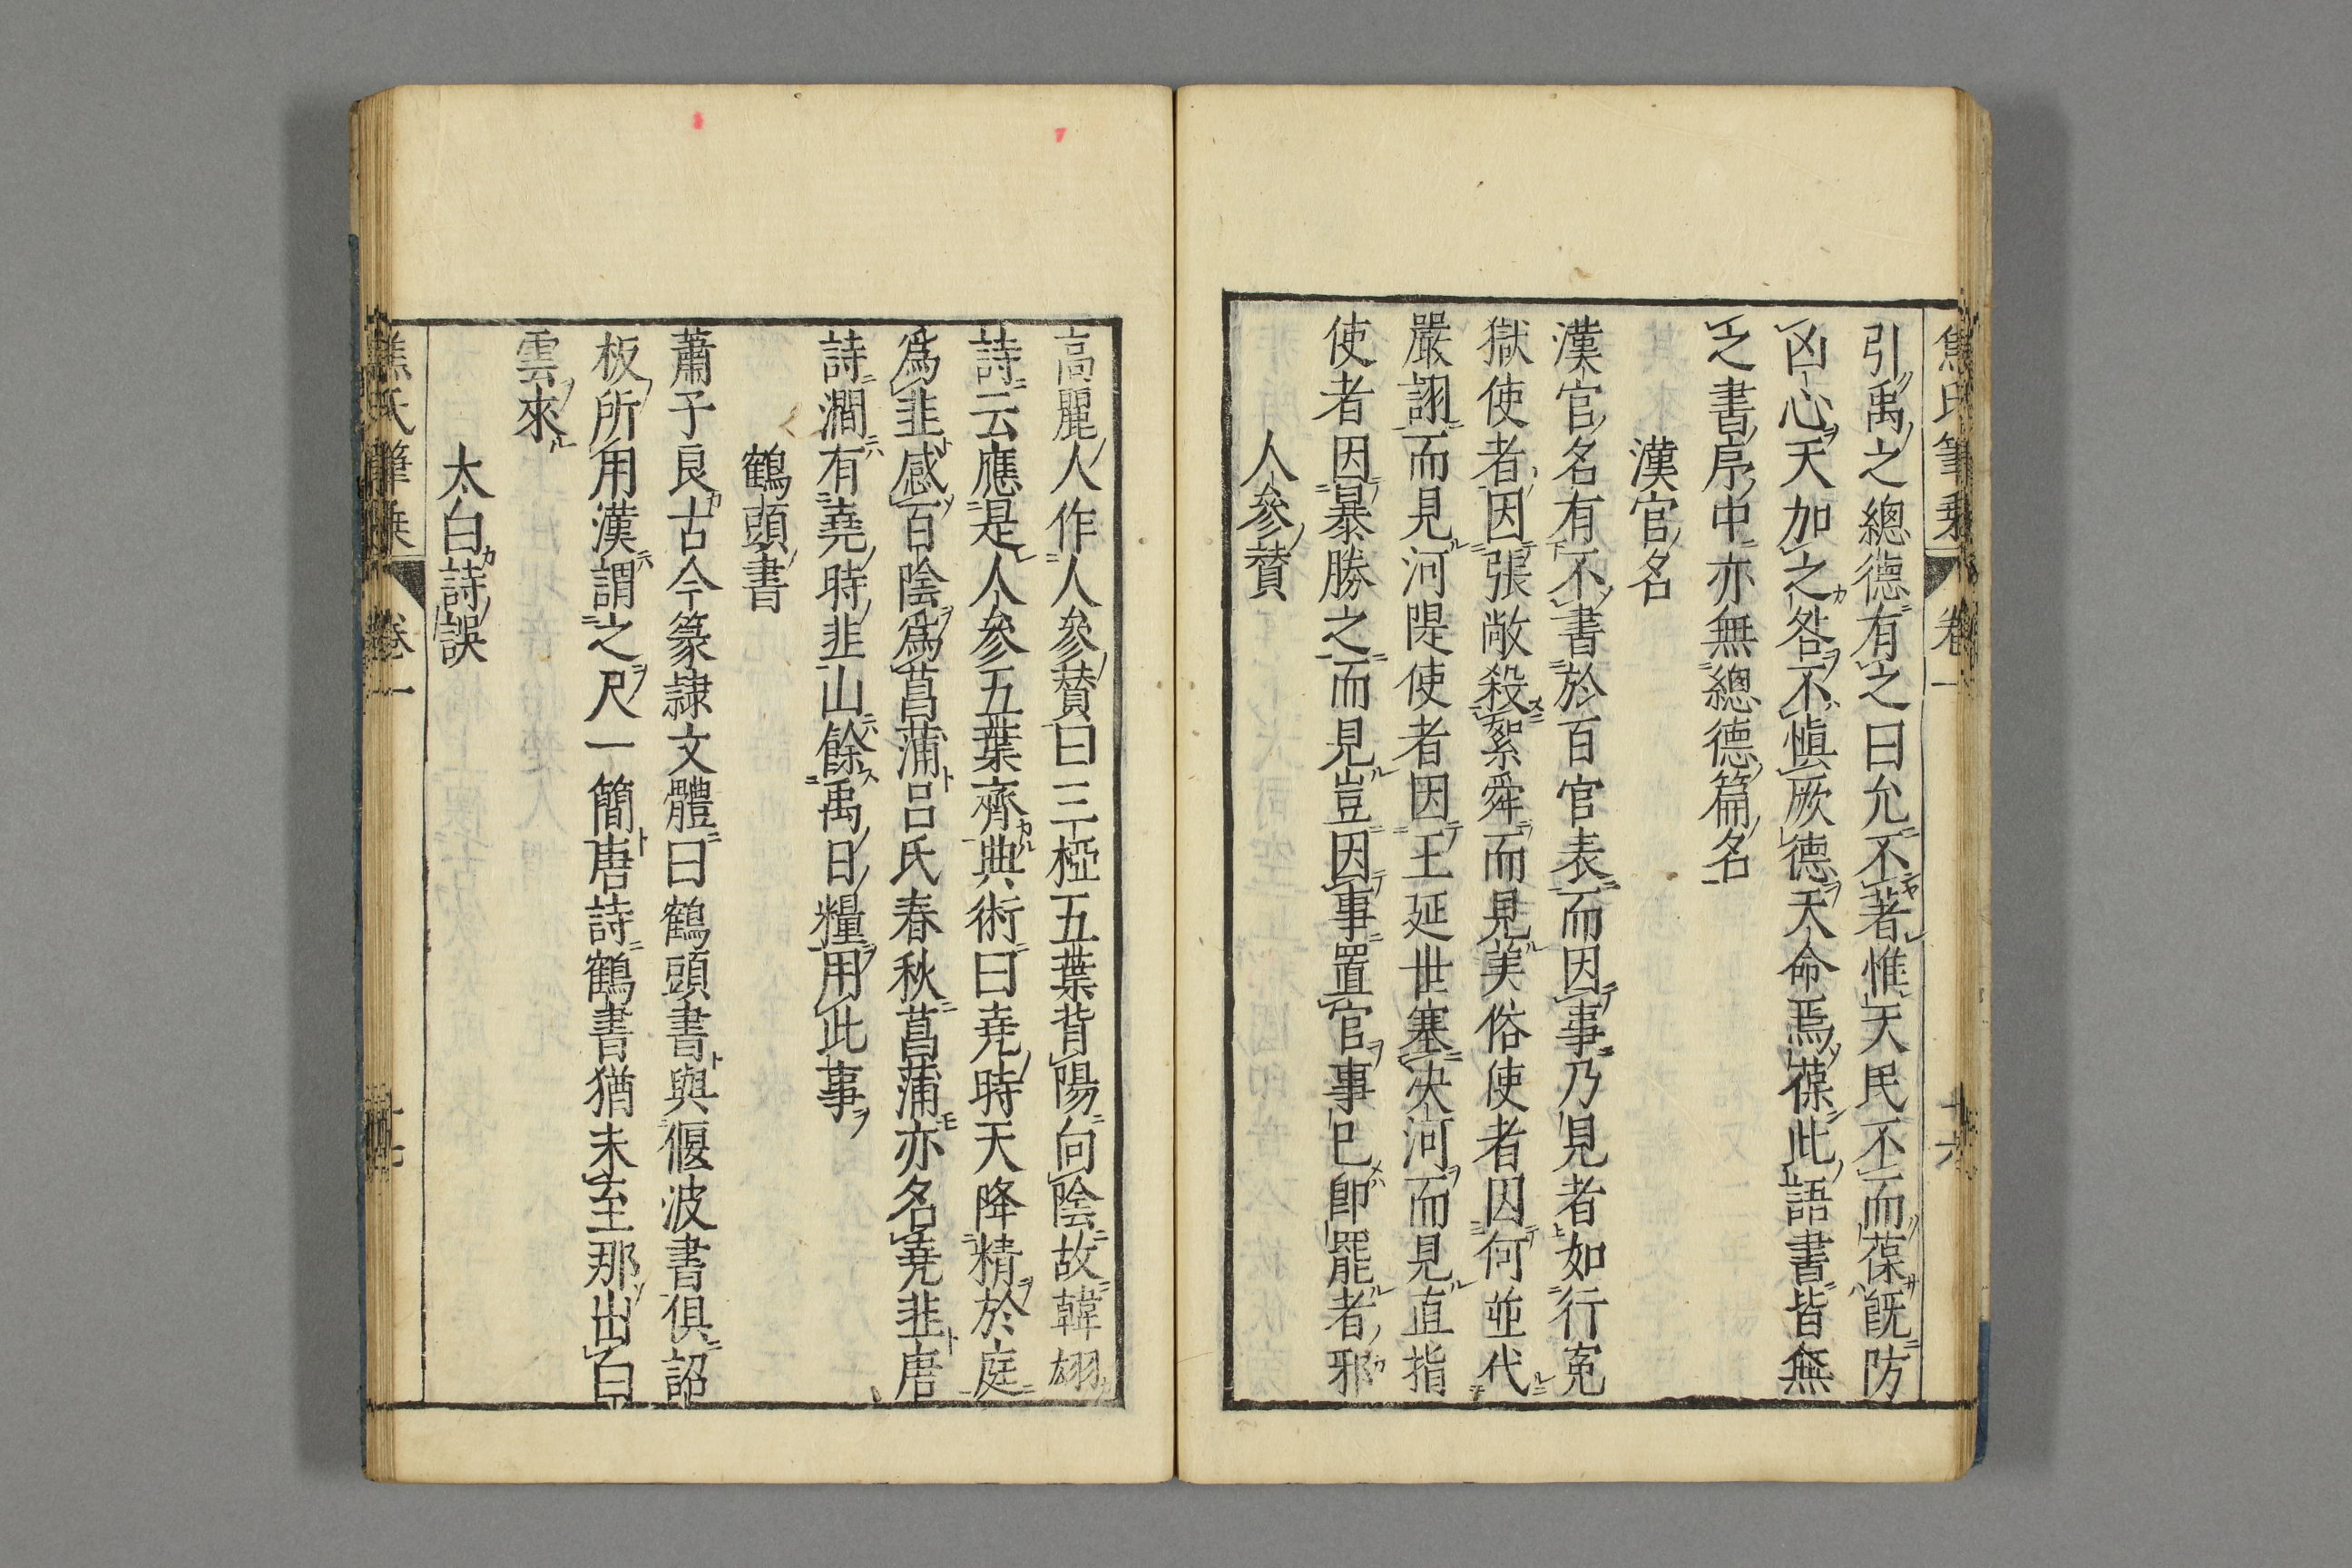 焦氏筆乗 卷一 十六
引禹之總德有之曰允不著惟天民不而葆既防
凶心天加之咎不愼厥德天命焉葆此語書皆無
之書序中亦無總德篇名
漢官名
漢官名有不書於百官表而因事乃見者如行寃
獄使者因張敞殺絮舜而見美俗使者因何並代
嚴詡而見河隄使者因王延世塞决河而見直指
使者因暴勝之而見豈因事置官事已卽罷者邪
人參賛
高麗人作人參賛曰三椏五葉背陽向陰故韓翃
詩云應是人參五葉齊典術曰堯時天降精於庭
爲韭感百陰爲菖蒲呂氏春秋菖蒲亦名堯韭唐
詩澗有堯時韭山餘禹日糧用此事
鶴頭書
蕭子良古今篆隷文體曰鶴頭書與偃波書俱詔
板所用漢謂之尺一簡唐詩鶴書猶未至那出白
雲來
太白詩誤
焦氏筆乗 卷一